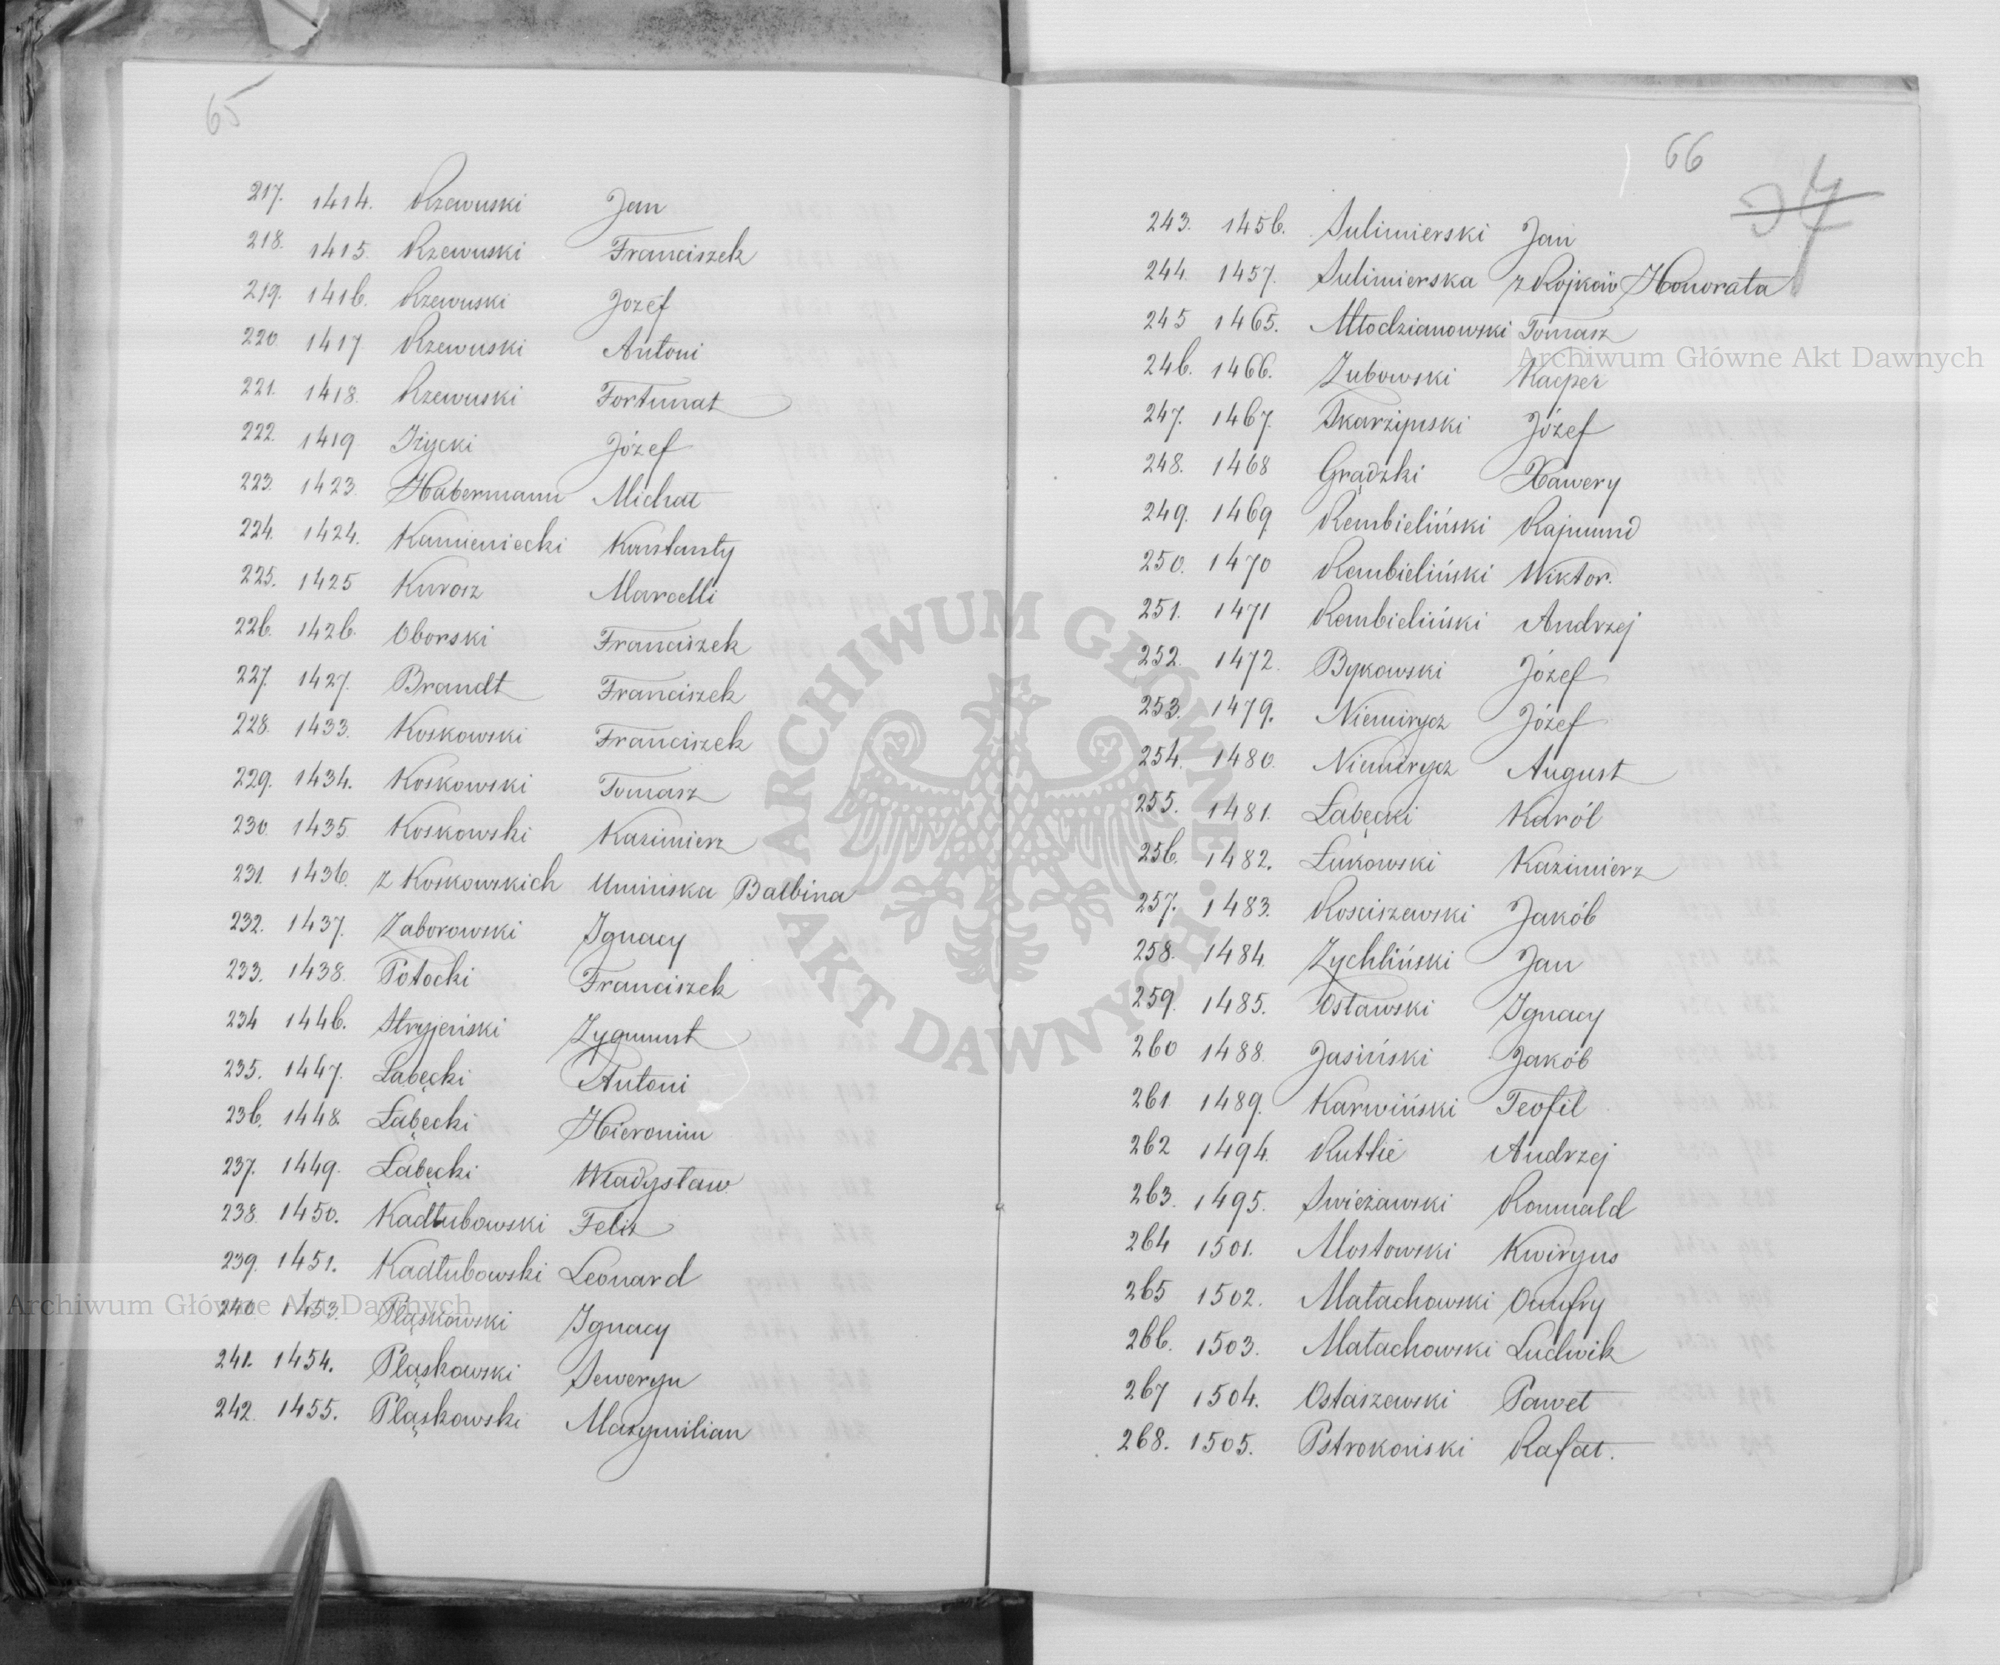 65
217. 1414. Rzewuski Jan
218. 1415. Rzewuski Franciszek
219. 1416. Rzewuski Józef
220. 1417 Rzewuski Antoni
221. 1418. Rzewuski Fortunat
222. 1419 Iżycki Józef
223. 1423. Habermann Michał
224. 1424. Kamieniecki Konstanty
225. 1425 Kurosz Marcelli
226. 1426. Oborski Franciszek
227. 1427. Brandt Franciszek
228. 1433. Koskowski Franciszek
229. 1434. Koskowski Tomasz
230. 1435 Koskowski Kazimierz
231. 1436. z Koskowskich Umińska Balbina
232. 1437. Zaborowski Ignacy
233. 1438. Potocki Franciszek
234 1446. Stryjeński Zygmunt
235. 1447. Łabęcki Antoni
236. 1448. Łabęcki Hieronim
237. 1449. Łabęcki Władysław
238. 1450. Kadłubowski Felix
239. 1451. Kadłubowski Leonard
240. 1453. Pląskowski Ignacy
241. 1454. Pląskowski Seweryn
242. 1455. Pląskowski Maxymilian
66
243. 1456. Sulimierski Jan
244. 1457. Sulimierska z Rojków Honorata
245 1465. Młodzianowski Tomasz
246. 1466. Zubowski Kacper
247. 1467. Skarzipski Józef
248. 1468 Grądzki Xawery
249. 1469 Rembieliński Rajmund
250. 1470 Rembieliński Wiktor.
251. 1471 Rembieliński Andrzej
252. 1472. Bykowski Józef
253. 1479. Niemirycz Józef
254. 1480. Niemirycz August
255. 1481. Łabęcki Karól
256. 1482. Łukowski Kazimierz
257. 1483. Rościszewski Jakób
258. 1484. Zychliński Jan
259. 1485. Osławski Ignacy
260 1488. Jasiński Jakób
261 1489. Karwiński Teofil
262 1494. Ruttié Andrzej
263. 1495. Swieżawski Romuald
264 1501. Mostowski Kwiryus
265 1502. Małachowski Onufry
266. 1503. Małachowski Ludwik
267 1504. Ostaszewski Paweł
268. 1505. Pstrokoński Rafał.
Archiwum Główne Akt Dawnych
Archiwum Główne Akt Dawnych
ARCHIWUM GŁÓWNE AKT DAWNYCH